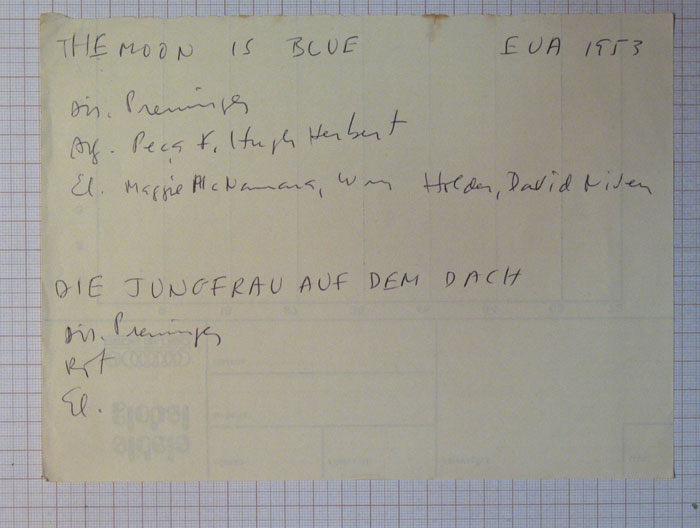 THE MOON IS BLUE EUA 1953
Dir. Preminger
Arg. Peça F. Hugh Herbert
El. Maggie McNamara, Wm Holden, David Niven
DIE JUNGFRAU AUF DEM DACH
Dir. Preminger
El.